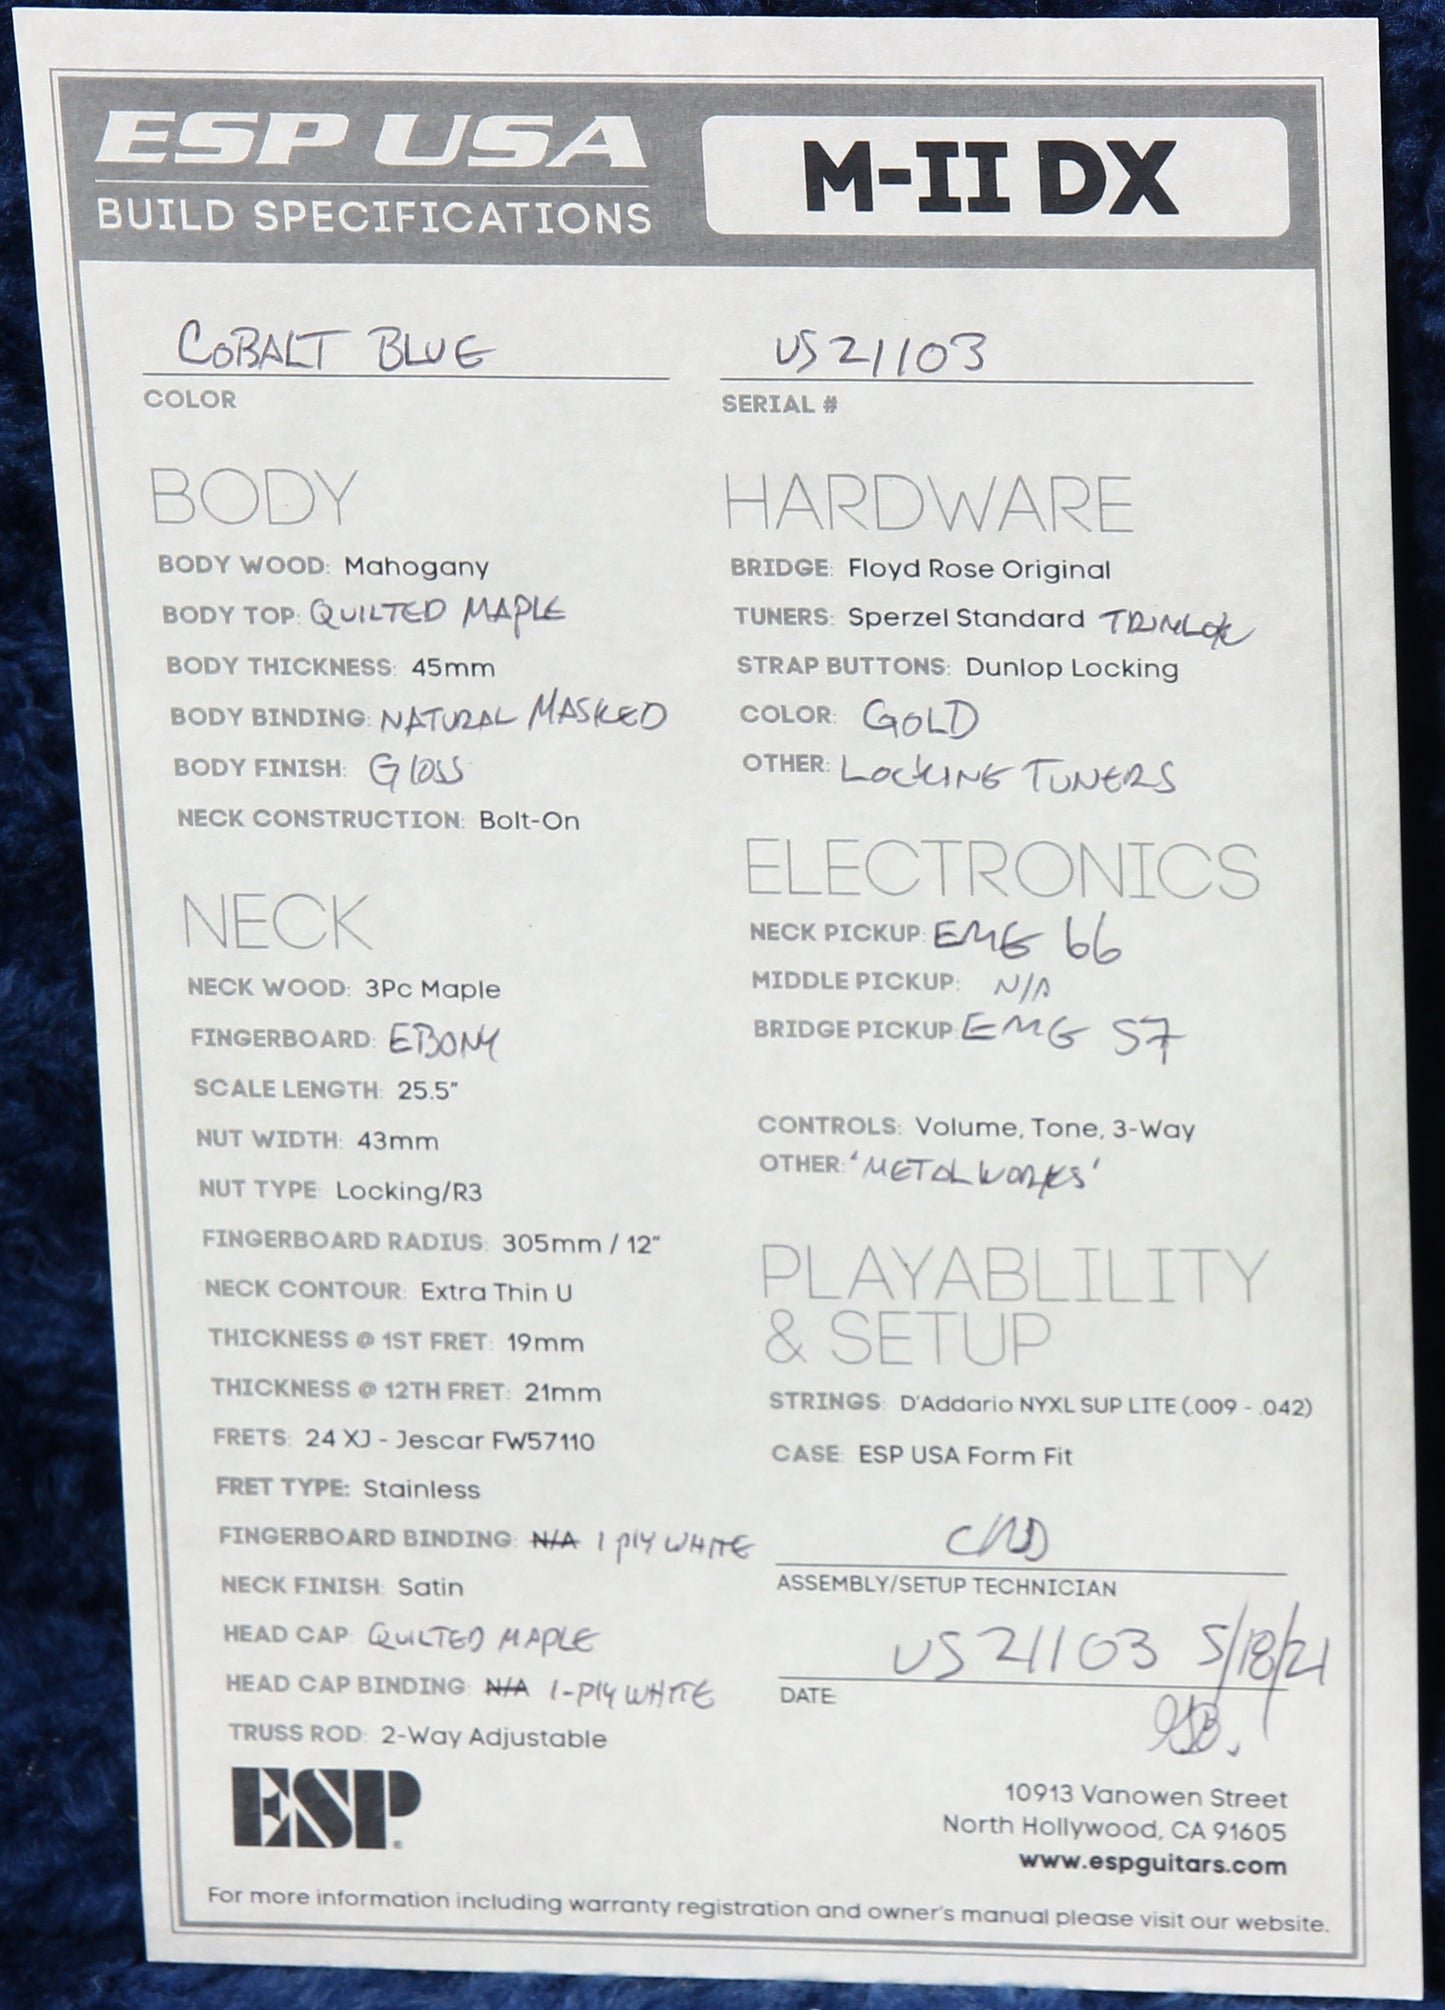 ESP USA
BUILD SPECIFICATIONS
M-II DX
COBALT BLUE
COLOR
US21103
SERIAL #
BODY
BODY WOOD: Mahogany
BODY TOP: QUILTED MAPLE
BODY THICKNESS: 45mm
BODY BINDING: NATURAL MASKED
BODY FINISH: GLOSS
NECK CONSTRUCTION: Bolt-On
NECK
NECK WOOD: 3Pc Maple
FINGERBOARD: EBONY
SCALE LENGTH: 25.5"
NUT WIDTH: 43mm
NUT TYPE: Locking/R3
FINGERBOARD RADIUS: 305mm / 12"
NECK CONTOUR: Extra Thin U
THICKNESS @ 1ST FRET: 19mm
THICKNESS @ 12TH FRET: 21mm
FRETS: 24 XJ - Jescar FW57110
FRET TYPE: Stainless
FINGERBOARD BINDING: N/A 1 PLY WHITE
NECK FINISH: Satin
HEAD CAP: QUILTED MAPLE
HEAD CAP BINDING: N/A 1-PLY WHITE
TRUSS ROD: 2-Way Adjustable
HARDWARE
BRIDGE: Floyd Rose Original
TUNERS: Sperzel Standard TRIMLOK
STRAP BUTTONS: Dunlop Locking
COLOR: GOLD
OTHER: LOCKING TUNERS
ELECTRONICS
NECK PICKUP: EMG 66
MIDDLE PICKUP: N/A
BRIDGE PICKUP: EMG 57
CONTROLS: Volume, Tone, 3-Way
OTHER: 'METAL WORKS'
PLAYABLILITY
& SETUP
STRINGS: D'Addario NYXL SUP LITE (.009 - .042)
CASE: ESP USA Form Fit
ASSEMBLY/SETUP TECHNICIAN
US21103 5/18/21
DATE
ESP
10913 Vanowen Street
North Hollywood, CA 91605
www.espguitars.com
For more information including warranty registration and owner's manual please visit our website.